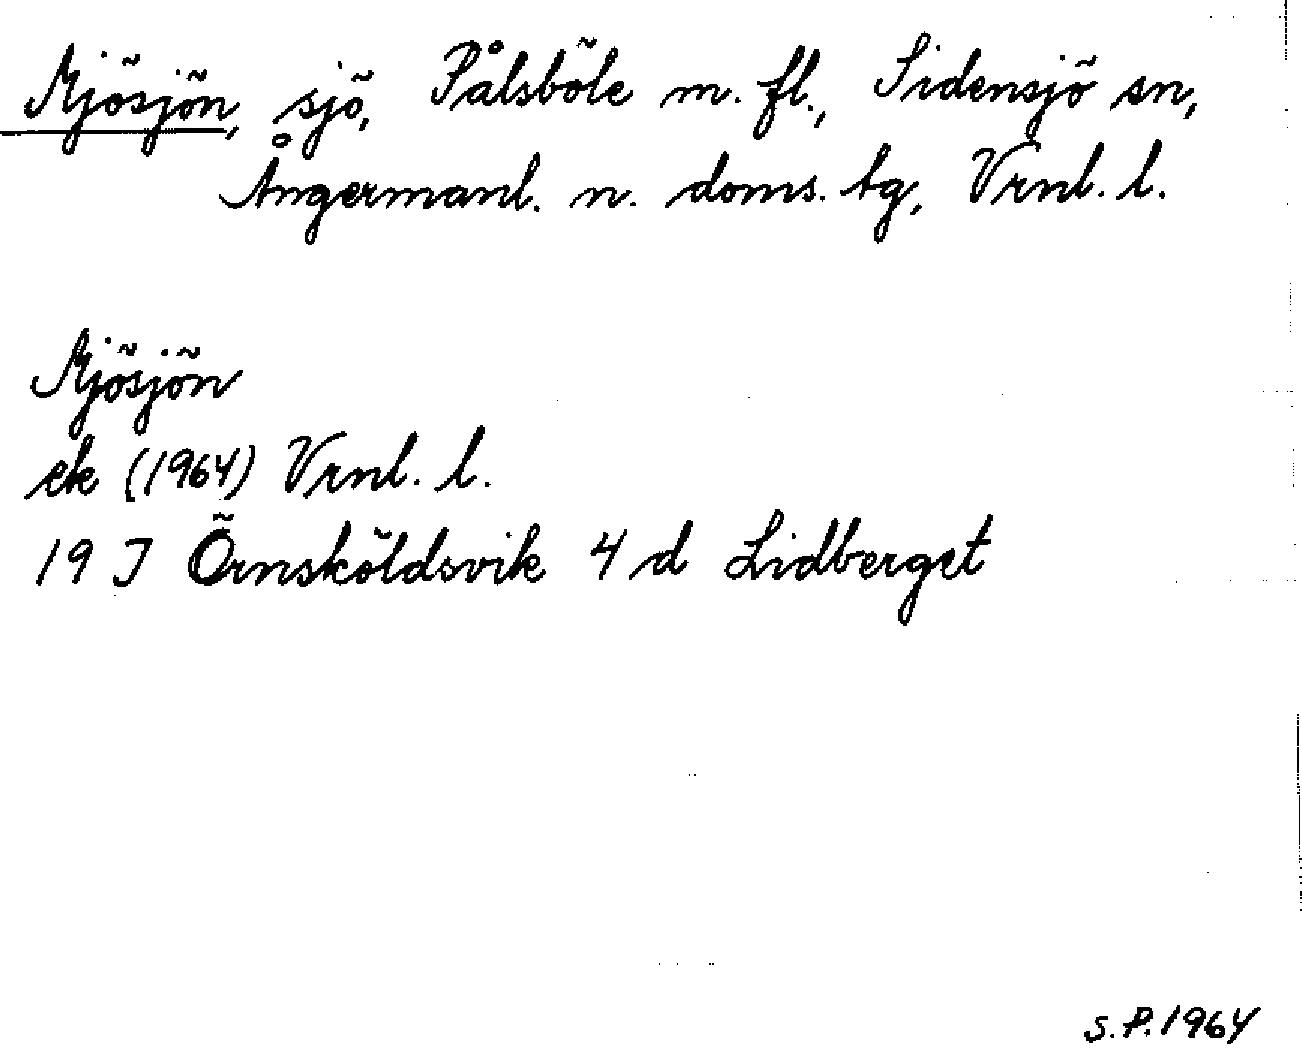 Mjösjön, sjö, Pålsböle m. fl., Sidensjö sn,
Ångermanl. n. doms. tg, Vrnl. l.
Mjösjön
ek (1964) Vrnl. l.
19 J Örnsköldsvik 4 d Lidberget
S.P. 1964